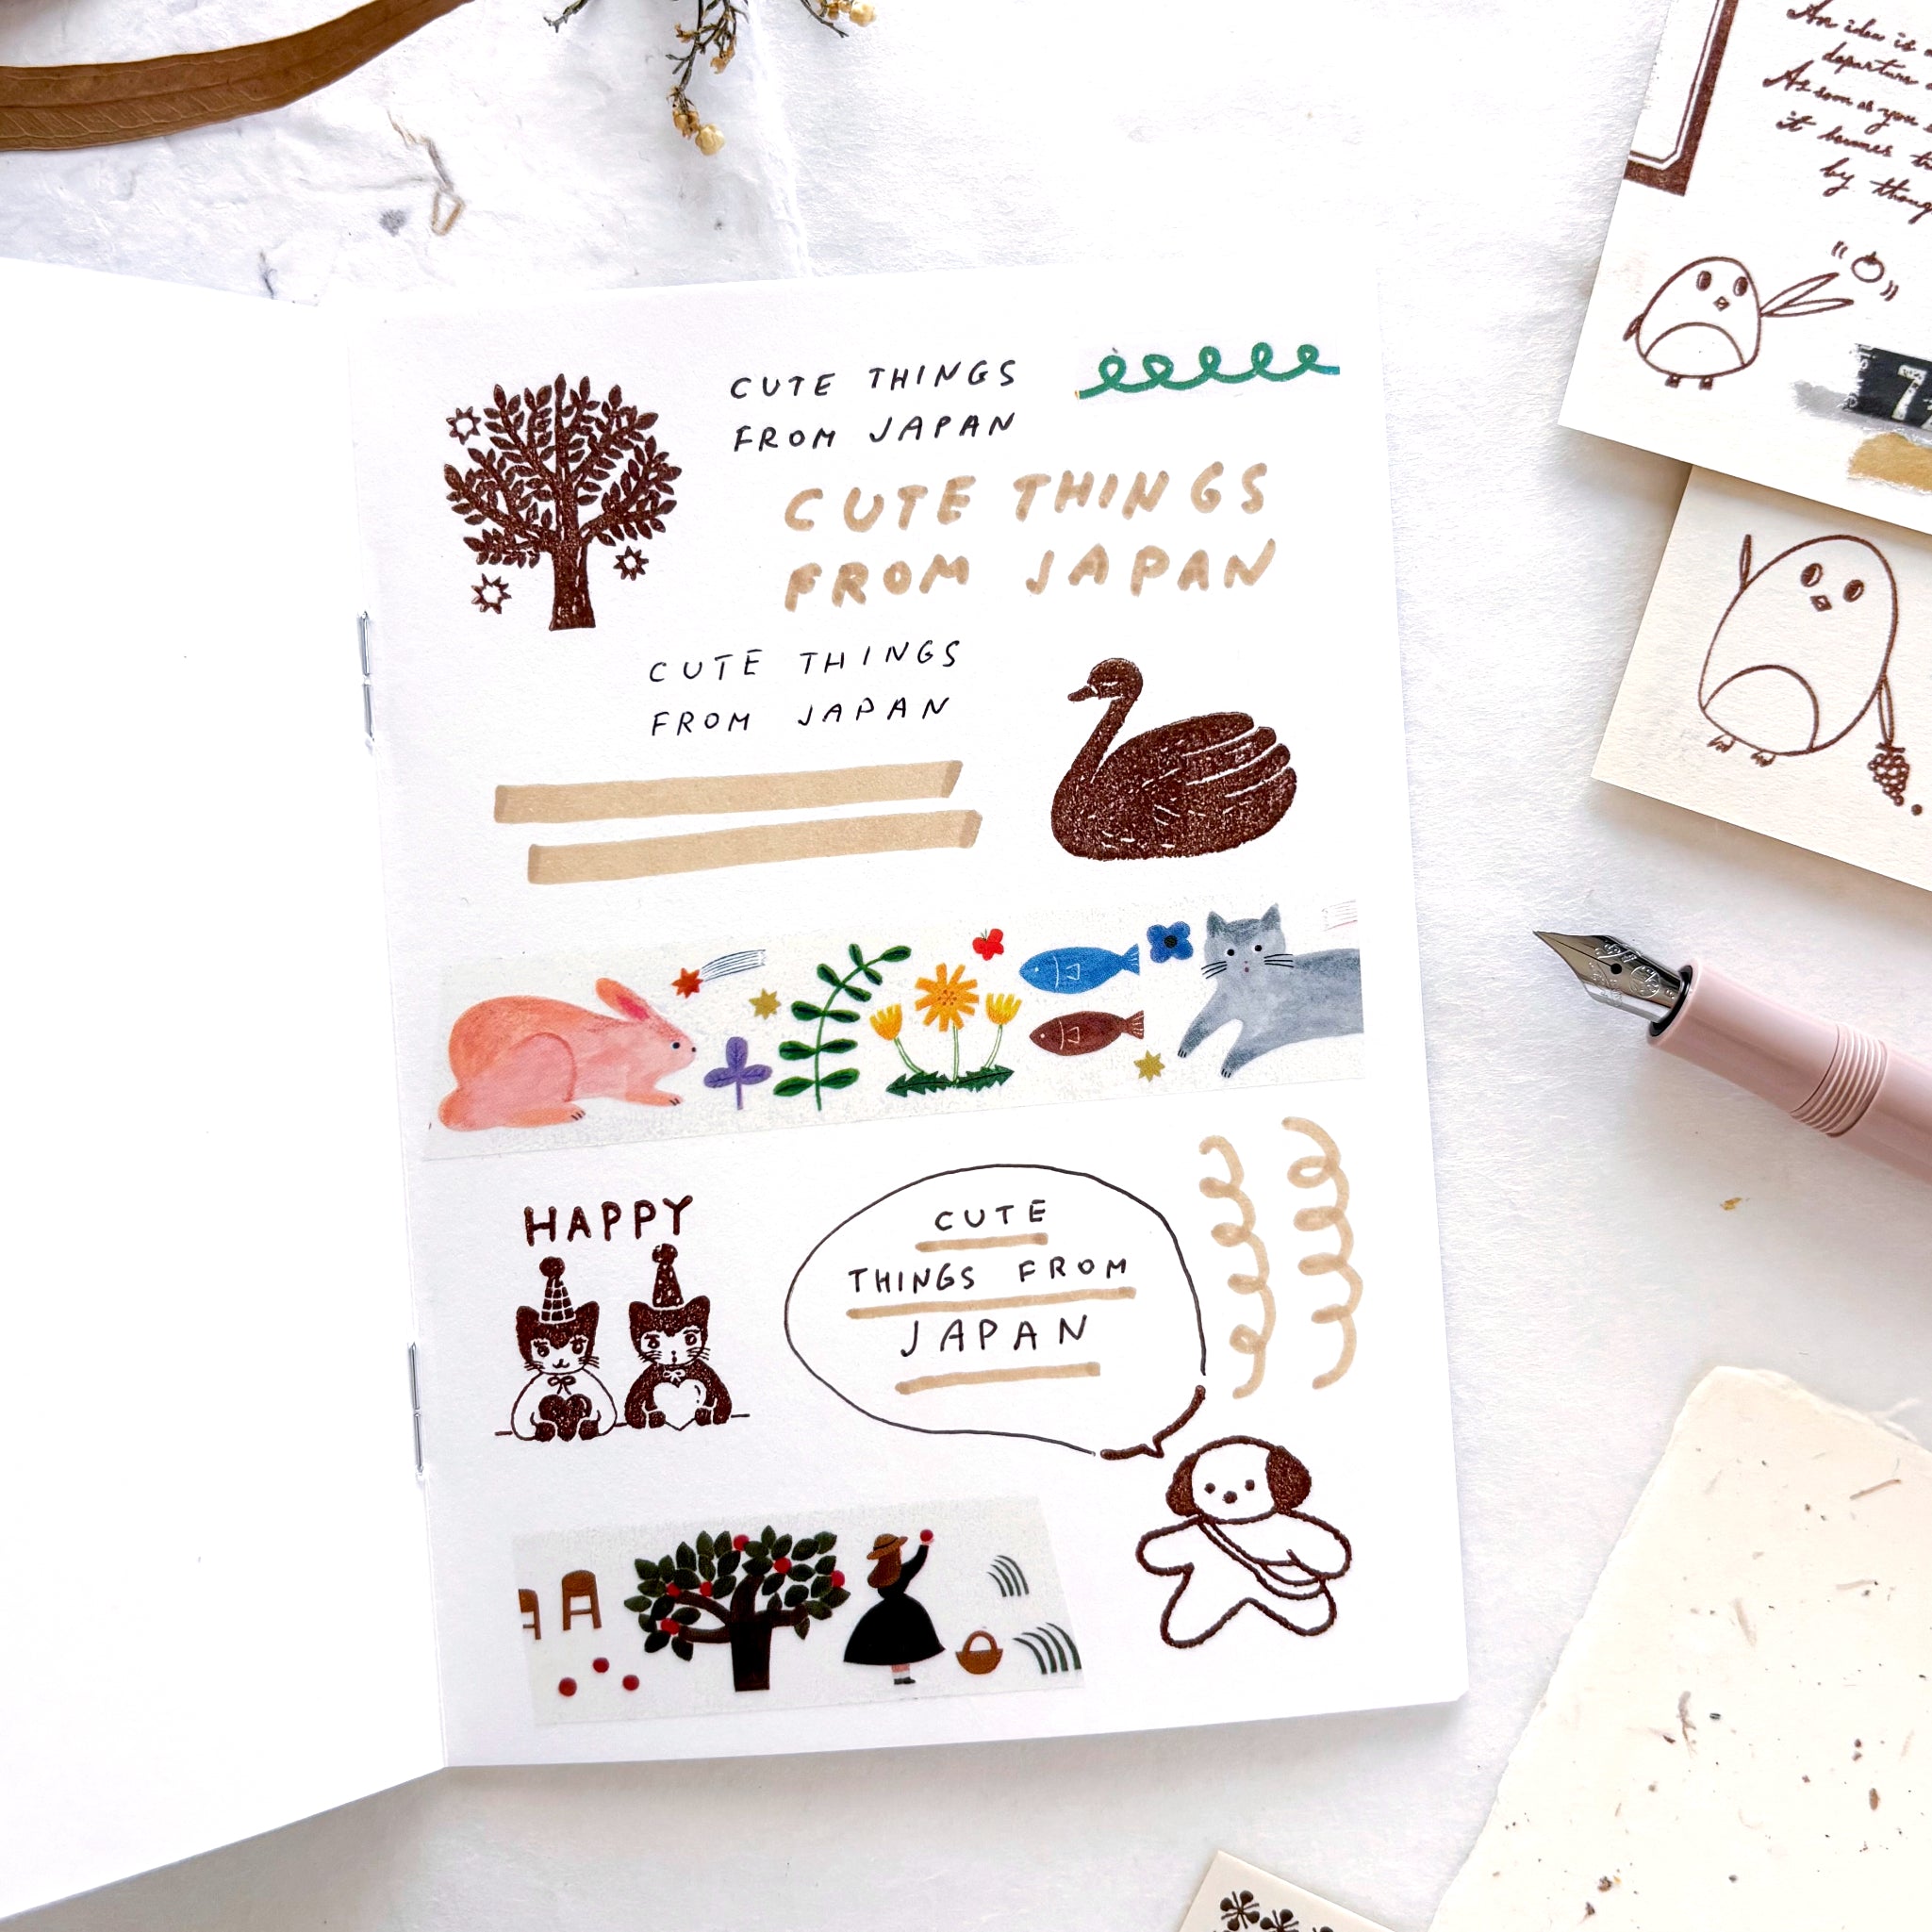 CUTE THINGS
FROM JAPAN
CUTE THINGS
FROM JAPAN
CUTE THINGS
FROM JAPAN
HAPPY
CUTE
THINGS FROM
JAPAN
An idea is a
departure
As soon as you
it becomes
by
7